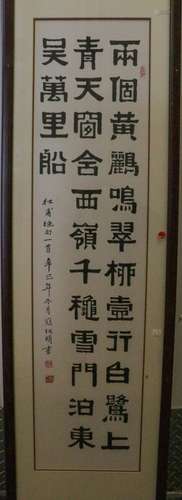 兩個黃鸝鳴翠柳壹行白鷺上
青天窗含西嶺千穐雪門泊東
吳萬里船
杜甫絕句一首 辛巳年冬月 明書